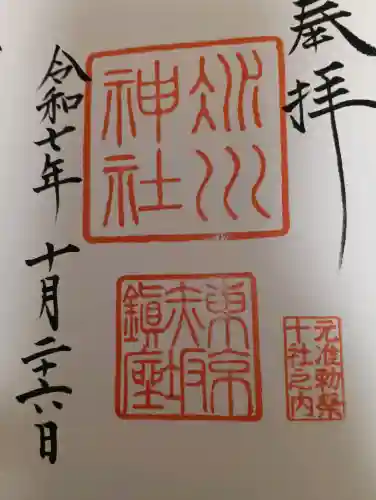 奉拝
元准勅祭
十社之内
氷川
神社
東京
赤坂
鎮座
令和七年 十月二十六日